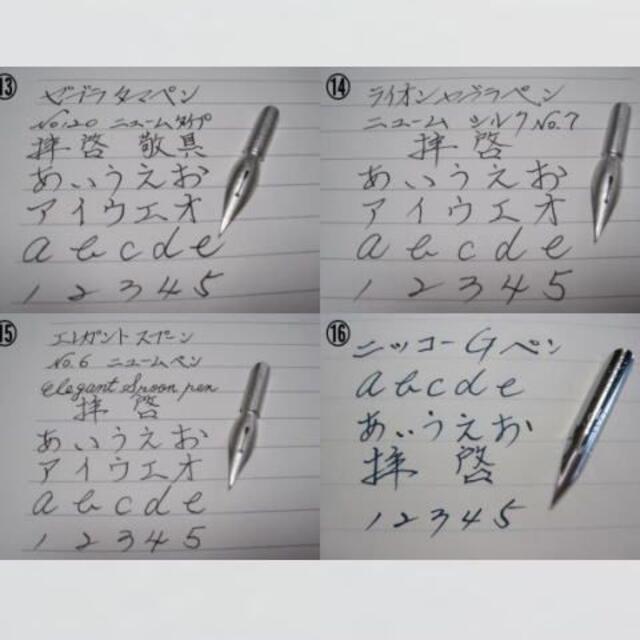 ⑬
ゼブラタマペン
No.120 ニュームタイプ
拝啓 敬具
あいうえお
アイウエオ
a b c d e
1 2 3 4 5
⑭
ライオンゼブラペン
ニューム シルク No.7
拝啓
あいうえお
アイウエオ
a b c d e
1 2 3 4 5
⑮
エレガントスプーン
No.6 ニュームペン
elegant Spoon pen
拝啓
あいうえお
アイウエオ
a b c d e
1 2 3 4 5
⑯
ニッコーGペン
a b c d e
あいうえお
拝啓
1 2 3 4 5